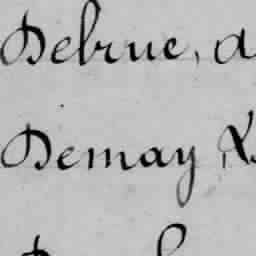 Debrue, a
Demay